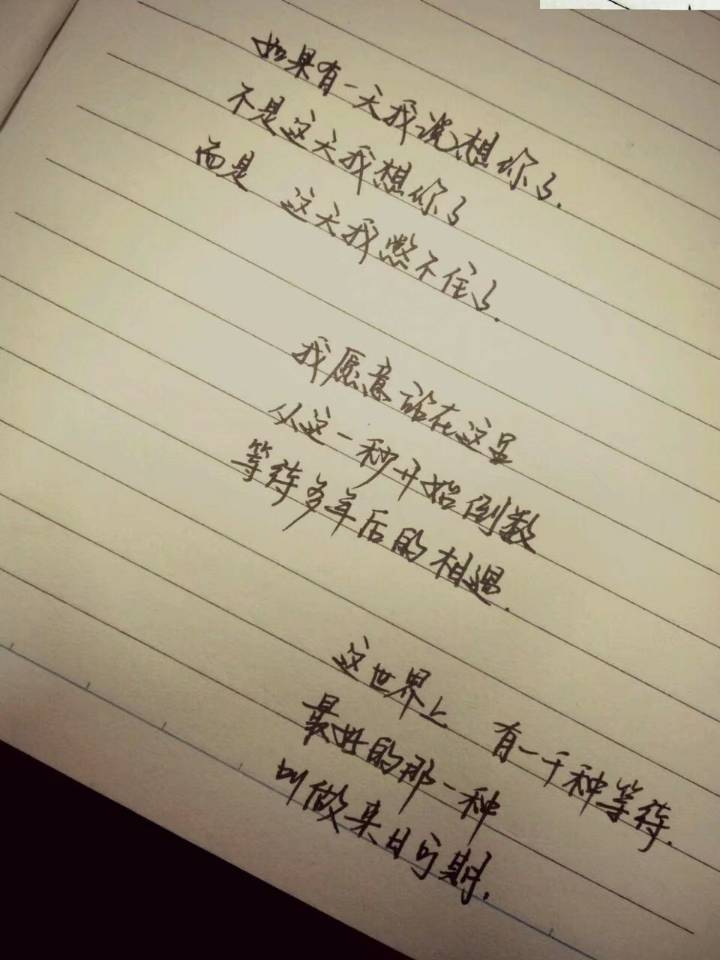 如果有一天我说想你了.
不是这天我想你了
而是 这天我憋不住了.
我愿意站在这里
从这一秒开始倒数
等待多年后的相遇.
这世界上 有一千种等待.
最好的那一种
叫做来日可期.